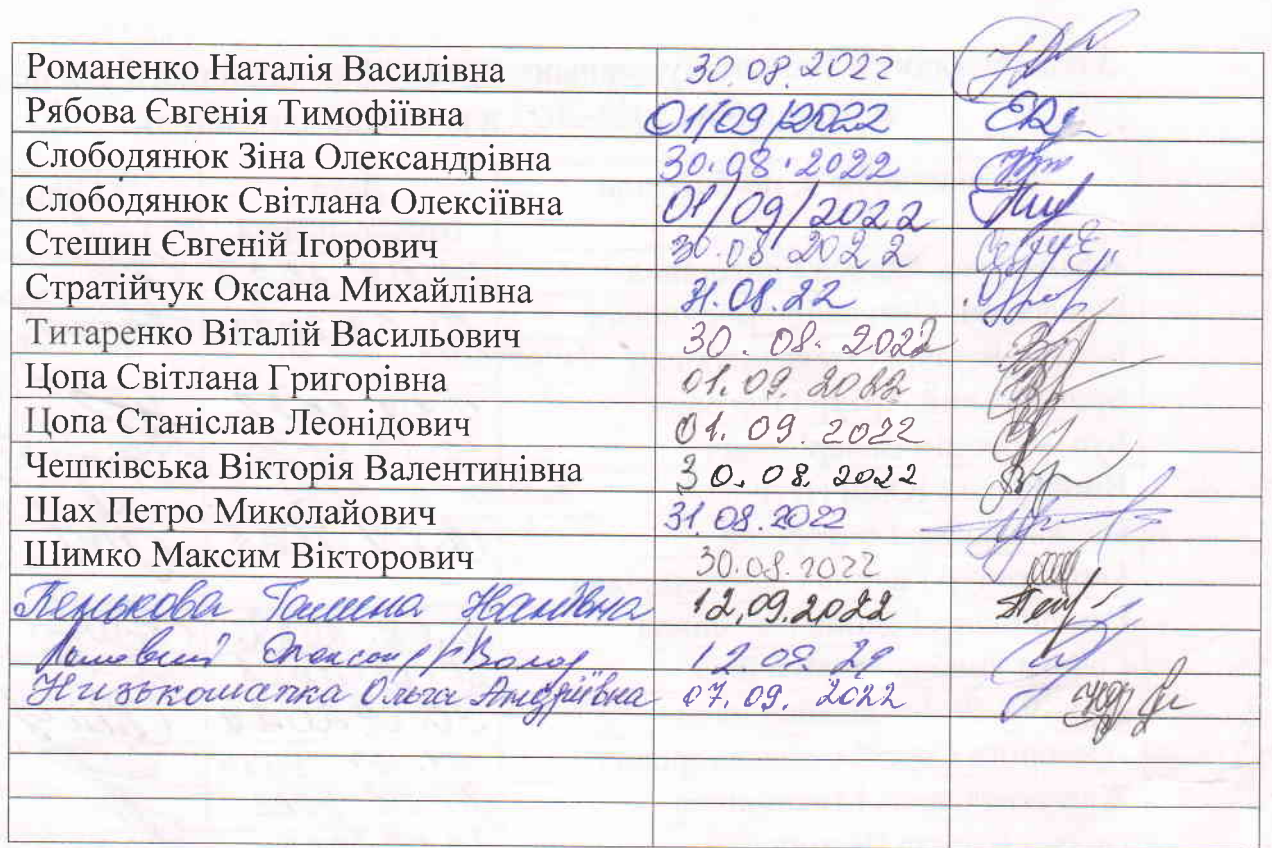 Романенко Наталія Василівна 30.08.2022
Рябова Євгенія Тимофіївна 01/09/2022
Слободянюк Зіна Олександрівна 30.08.2022
Слободянюк Світлана Олексіївна 01/09/2022
Стешин Євгеній Ігорович 30.08 2022
Стратійчук Оксана Михайлівна 31.08.22
Титаренко Віталій Васильович 30.08.2022
Цопа Світлана Григорівна 01.09.2022
Цопа Станіслав Леонідович 01.09.2022
Чешківська Вікторія Валентинівна 30.08.2022
Шах Петро Миколайович 31.08.2022
Шимко Максим Вікторович 30.08.2022
Пенькова 12.09.2022
12.09.
Низькошапка Ольга Андріївна 07.09.2022